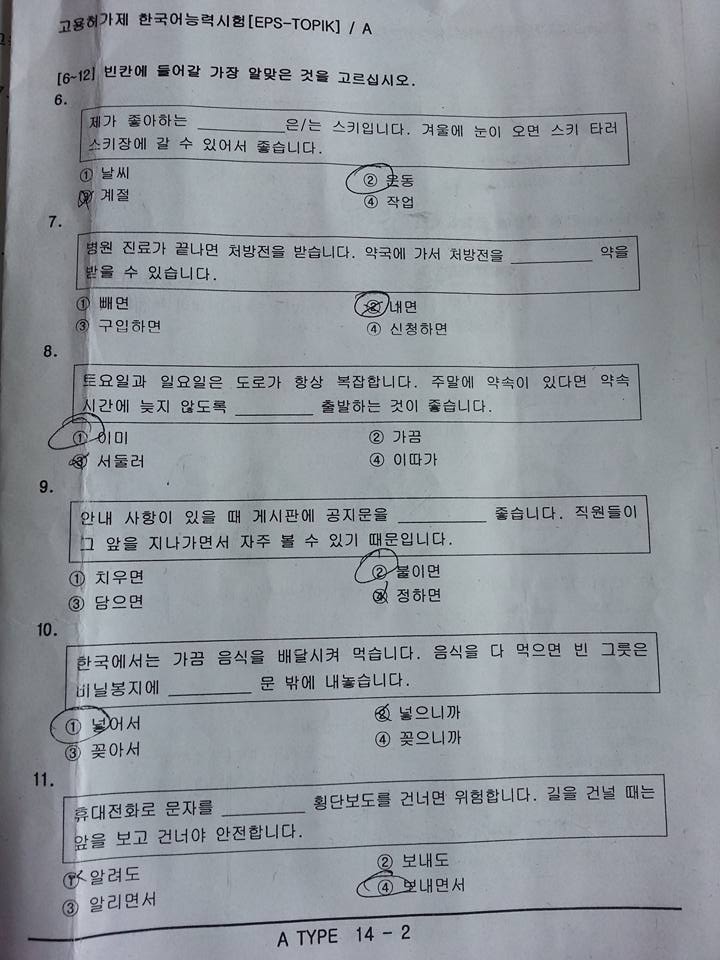 고용허가제 한국어능력시험[EPS-TOPIK] / A
[6~12] 빈칸에 들어갈 가장 알맞은 것을 고르십시오.
6.
제가 좋아하는 __________은/는 스키입니다. 겨울에 눈이 오면 스키 타러
스키장에 갈 수 있어서 좋습니다.
① 날씨 ② 운동
③ 계절 ④ 작업
7.
병원 진료가 끝나면 처방전을 받습니다. 약국에 가서 처방전을 __________ 약을
받을 수 있습니다.
① 빼면 ② 내면
③ 구입하면 ④ 신청하면
8.
토요일과 일요일은 도로가 항상 복잡합니다. 주말에 약속이 있다면 약속
시간에 늦지 않도록 __________ 출발하는 것이 좋습니다.
① 이미 ② 가끔
③ 서둘러 ④ 이따가
9.
안내 사항이 있을 때 게시판에 공지문을 __________ 좋습니다. 직원들이
그 앞을 지나가면서 자주 볼 수 있기 때문입니다.
① 치우면 ② 붙이면
③ 담으면 ④ 정하면
10.
한국에서는 가끔 음식을 배달시켜 먹습니다. 음식을 다 먹으면 빈 그릇은
비닐봉지에 __________ 문 밖에 내놓습니다.
① 넣어서 ② 넣으니까
③ 꽂아서 ④ 꽂으니까
11.
휴대전화로 문자를 __________ 횡단보도를 건너면 위험합니다. 길을 건널 때는
앞을 보고 건너야 안전합니다.
① 알려도 ② 보내도
③ 알리면서 ④ 보내면서
A TYPE 14 - 2